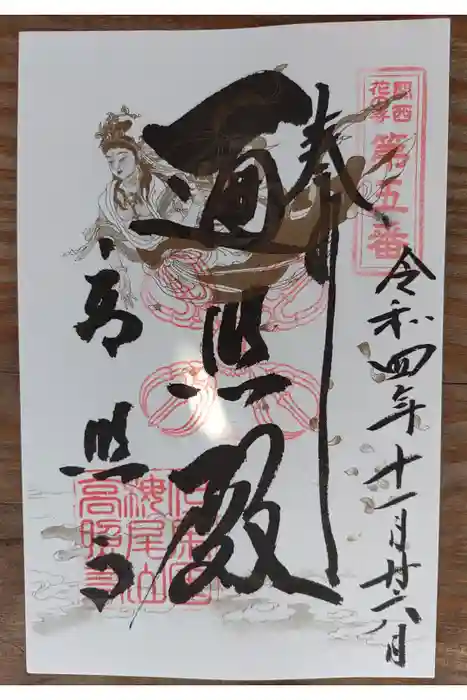 関西
花の寺
第五番
奉
令和四年十一月廿六日
遍照殿
高照寺
高照寺